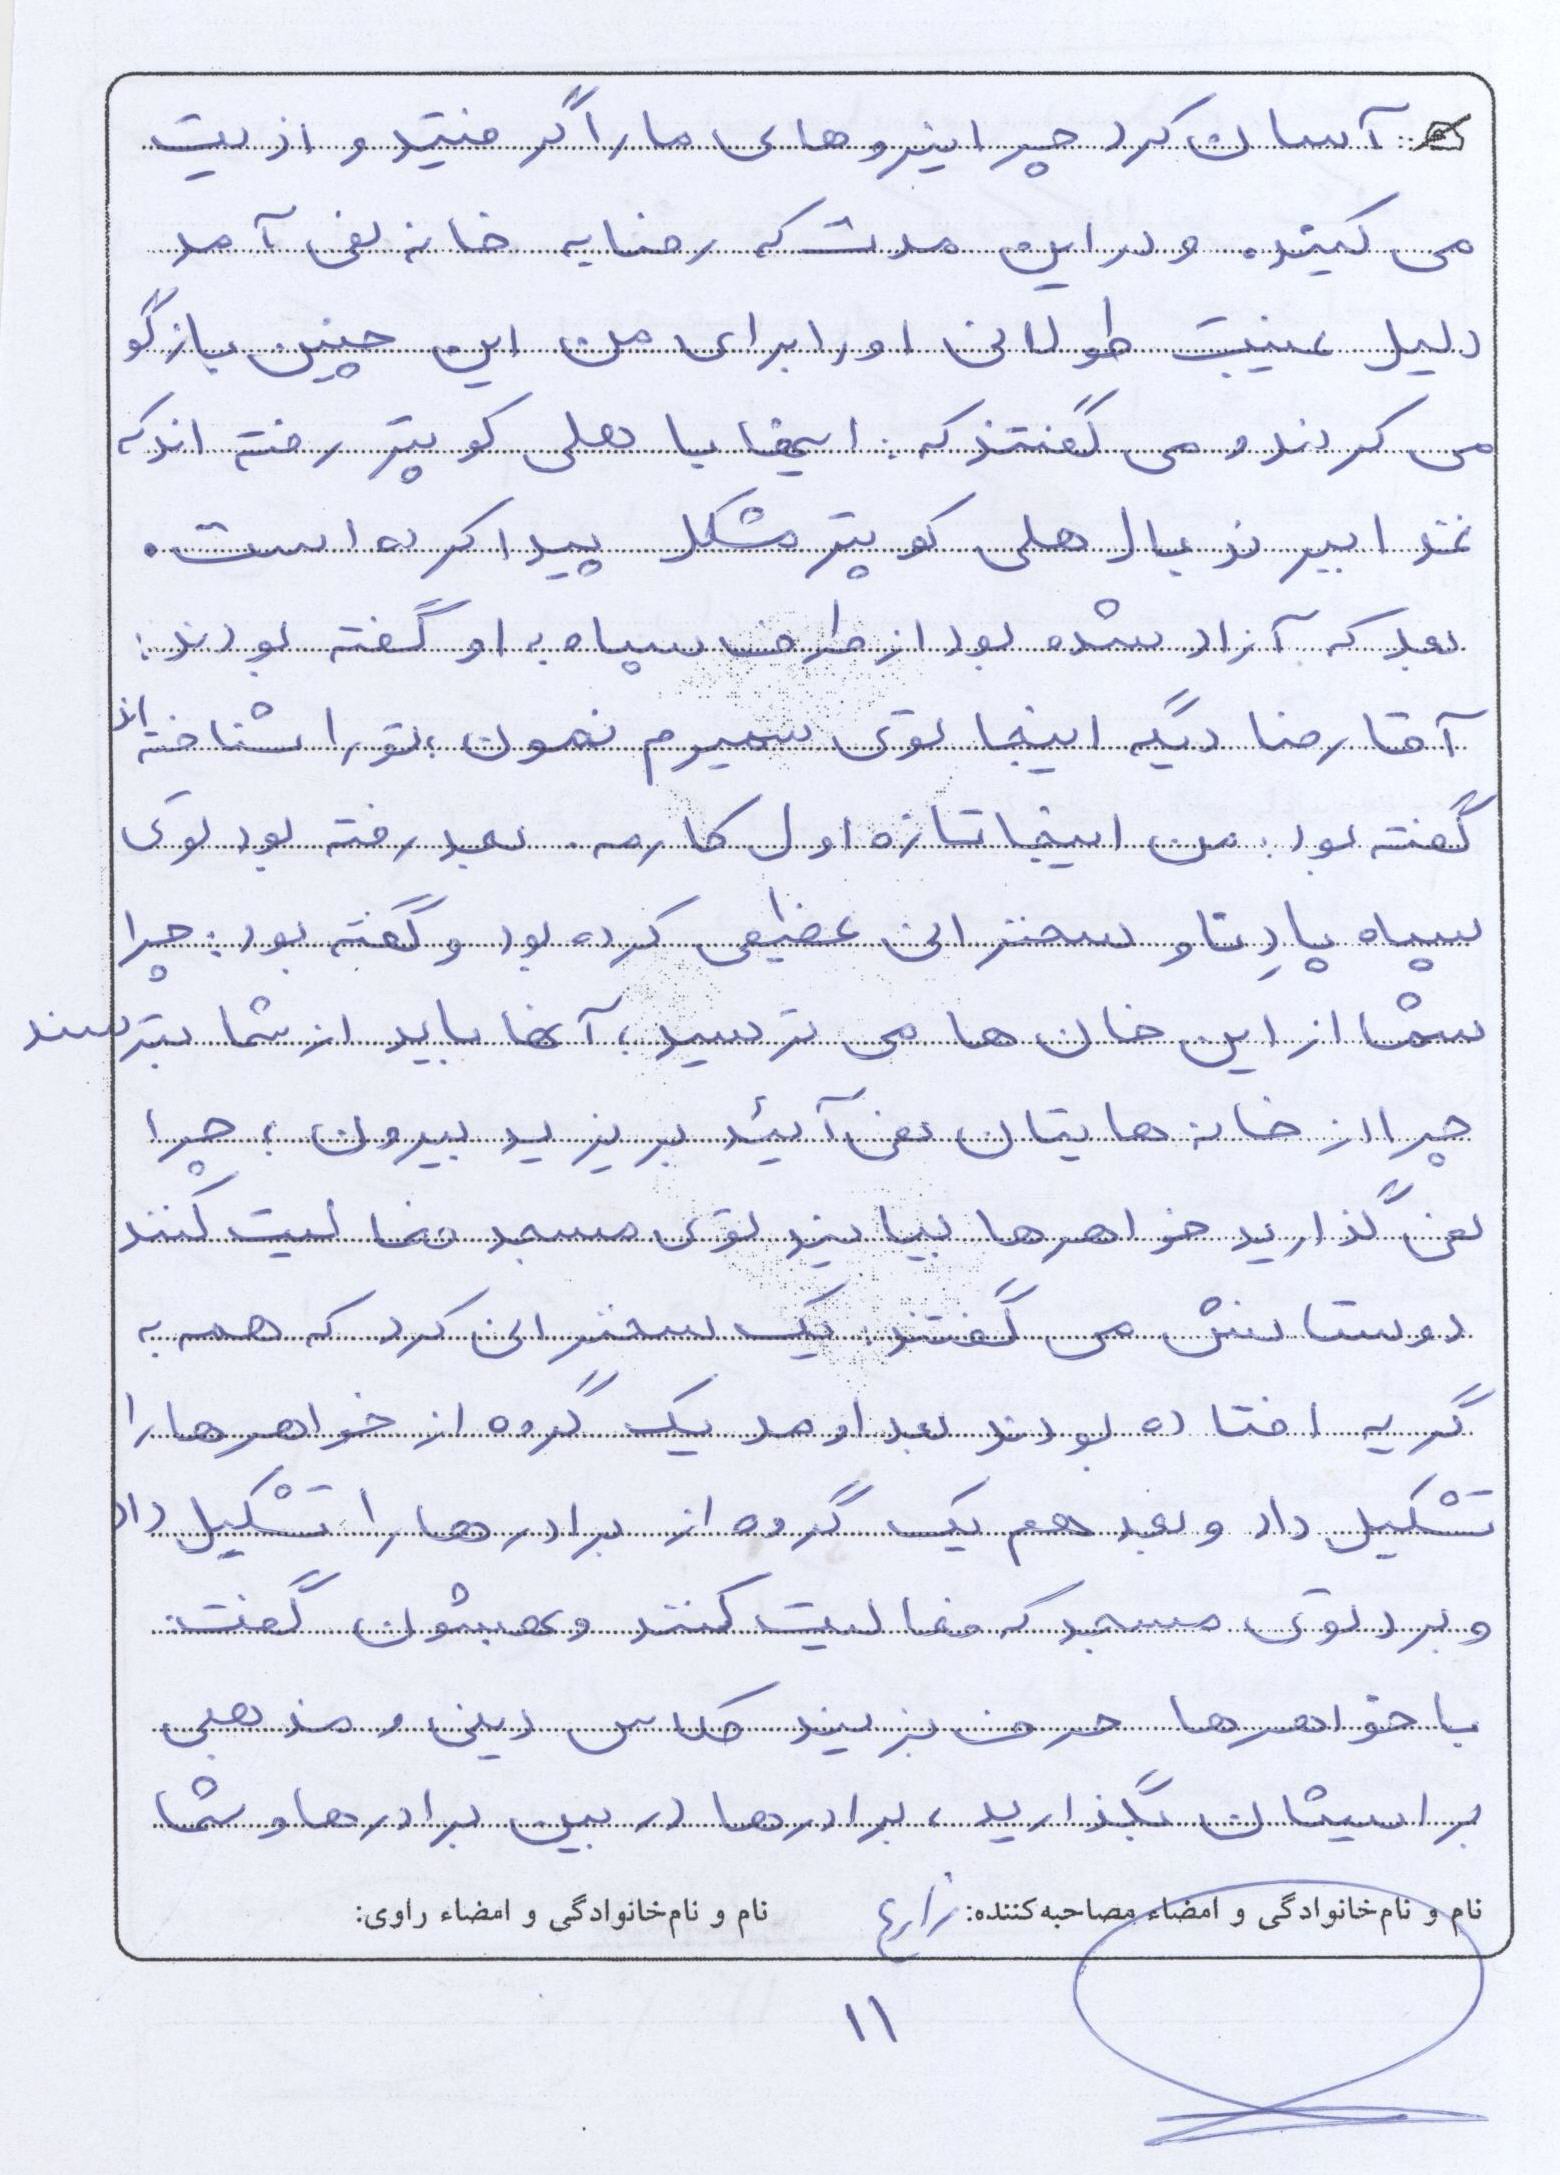 آسان کرد چرا نیروهای ما را گرفتید و اذیت
می کنید. و در این مدت که رضا به خانه نمی آمد
دلیل غیبت طولانی او را برای من این چنین بازگو
می کردند و می گفتند که: اینها با هلی کوپتر رفته اند که
غذا ببرند بال هلی کوپتر مشکل پیدا کرده است.
بعد که آزاد شده بود از طرف سپاه به او گفته بودند:
آقا رضا دیگه اینجا توی سمیرم نمون، تو را شناخته اند
گفته بود: من اینجا تازه اول کارمه. بعد رفته بود توی
سپاه پادِنا و سخنرانی عظیمی کرده بود و گفته بود: چرا
شما از این خان ها می ترسید، آنها باید از شما بترسند
چرا از خانه هایتان نمی آئید بریزید بیرون، چرا
نمی گذارید خواهرها بیایند توی مسجد فعالیت کنند
دوستانش می گفتند: یک سخنرانی کرد که همه به
گریه افتاده بودند بعد اومد یک گروه از خواهرها را
تشکیل داد و بعد هم یک گروه از برادرها را تشکیل داد
و برد توی مسجد که فعالیت کنند و بهشون گفت:
با خواهرها حرف بزنید کلاس دینی و مذهبی
برایشان بگذارید، برادرها در بین برادرها و شما
نام و نام‌خانوادگی و امضاء مصاحبه‌کننده: زارع
نام و نام‌خانوادگی و امضاء راوی:
۱۱